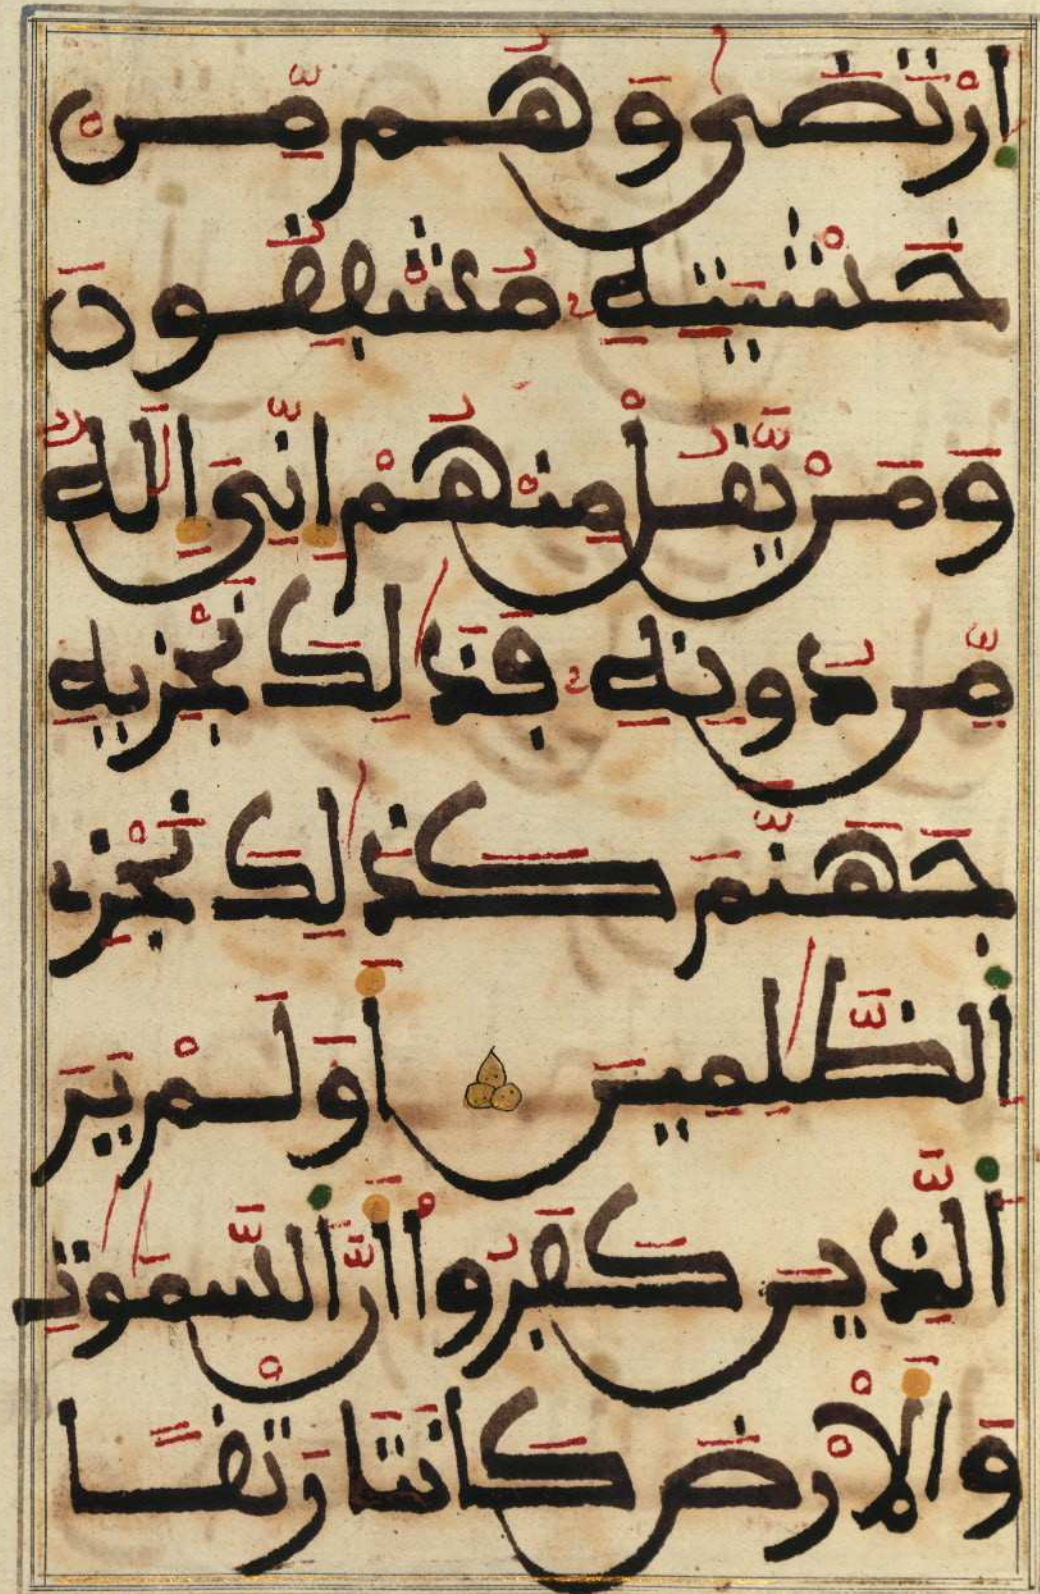 اِ۪رْتَض۪ىٰ وَهُم مِّنْ
خَشْيَتِهِۦ مُشْفِقُونَ
وَمَنْ يَّقُلْ مِنْهُمْ إِنِّيَ إِلَٰهٌ
مِّن دُونِهِۦ فَذَٰلِكَ نَجْزِيهِ
جَهَنَّمَ كَذَٰلِكَ نَجْزِے
اِ۬لظَّٰلِمِينَ أَوَلَمْ يَرَ
اَ۬لذِينَ كَفَرُوٓاْ أَنَّ اَ۬لسَّمَٰوَٰتِ
وَالْأَرْضَ كَانَتَا رَتْقاً